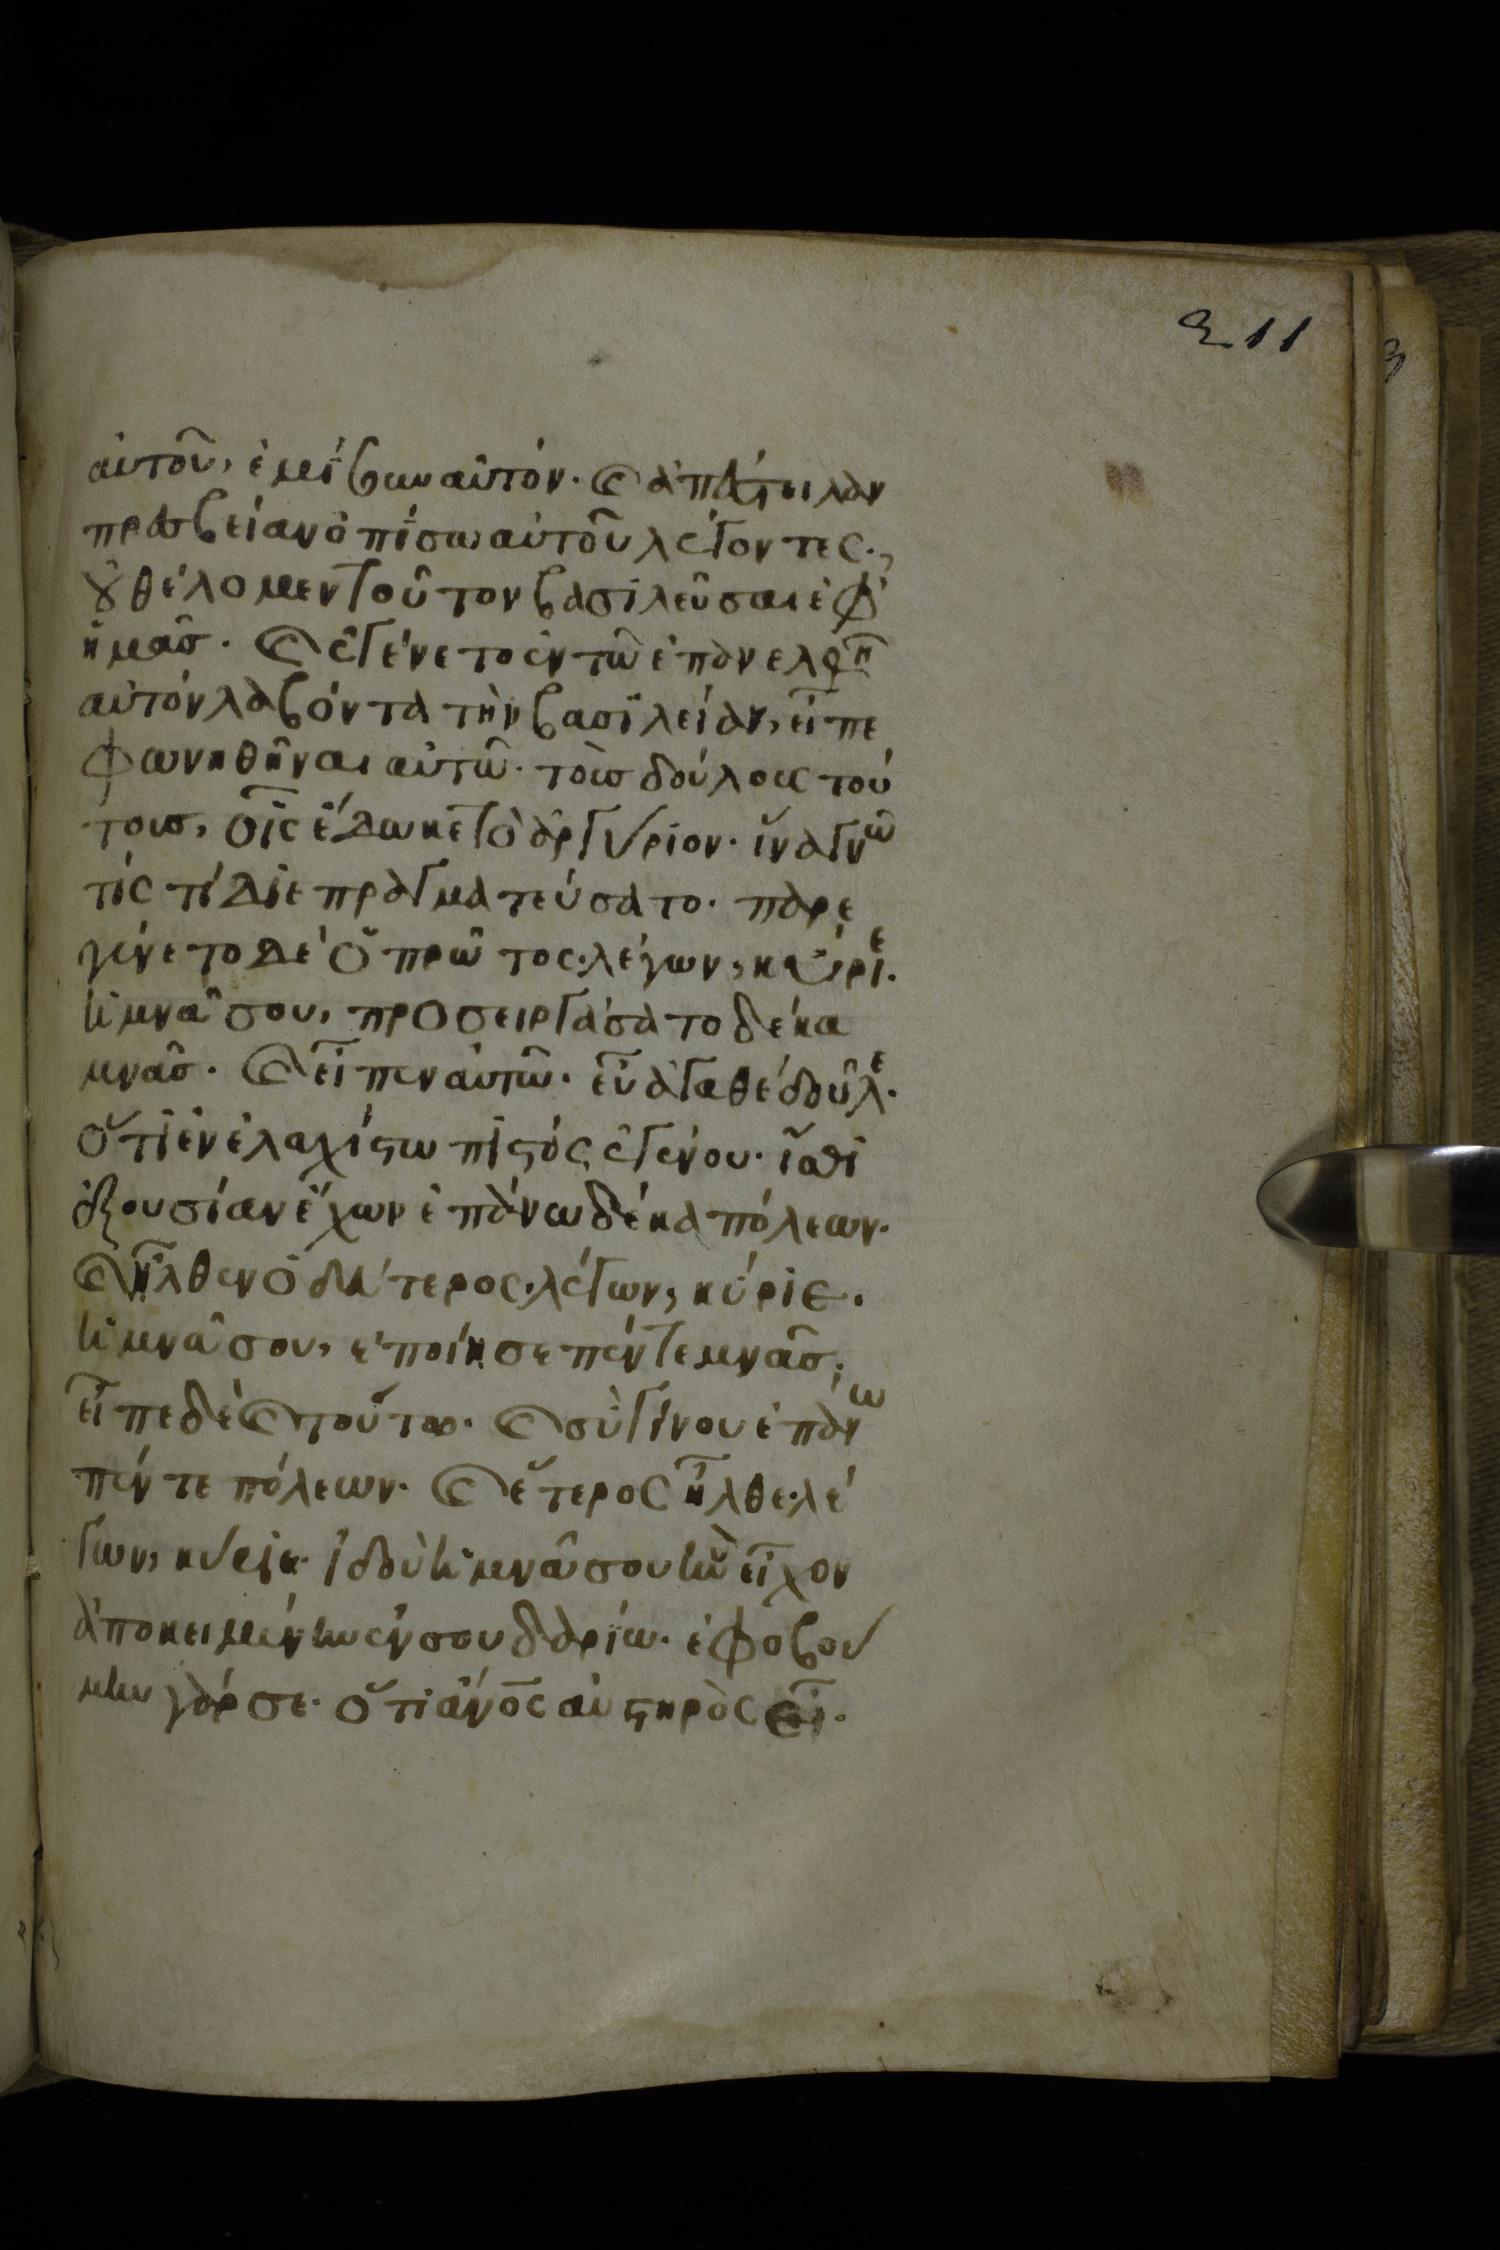 211
αὐτοῦ, ἐμίσουν αὐτόν. καὶ ἀπέστειλαν
πρεσβείαν ὀπίσω αὐτοῦ λέγοντες.,
οὐ θέλομεν τοῦτον βασιλεῦσαι ἐφ'
ἡμᾶσ. καὶ ἐγένετο ἐν τῶ ἐπανελθεῖν
αὐτὸν λαβόντα τὴν βασιλείαν, εἶπε
φωνηθῆναι αὐτῶ. τοὺσ δούλους τού
τουσ, οἷς ἔδωκε τὸ ἀργύριον. ἵνα γνῶ
τίς τί διεπραγματεύσατο. παρε
γένετο δὲ ὁ πρῶτος. λέγων, κύριε.
ἡ μνᾶ σου, προσειργάσατο δέκα
μνᾶσ. καὶ εἶπεν αὐτῶ. εὖ ἀγαθὲ δοῦλε.
ὅτι ἐν ἐλαχίστω πιστὸς ἐγένου. ἴσθι
ἐξουσίαν ἔχων ἐπάνω δέκα πόλεων.
καὶ ἦλθεν ὁ δεύτερος. λέγων, κύριε.
ἡ μνᾶ σου, ἐποίησε πέντε μνᾶσ.
εἶπε δὲ καὶ τούτω. καὶ σὺ γίνου ἐπάνω
πέντε πόλεων. καὶ ἕτερος ἦλθε. λέ
γων, κύριε. ἰδοὺ ἡ μνᾶ σου ἣν εἶχον
ἀποκειμένην ἐν σουδαρίω. ἐφοβού
μην γάρ σε. ὅτι ἄνος αὐστηρὸς εἶ.